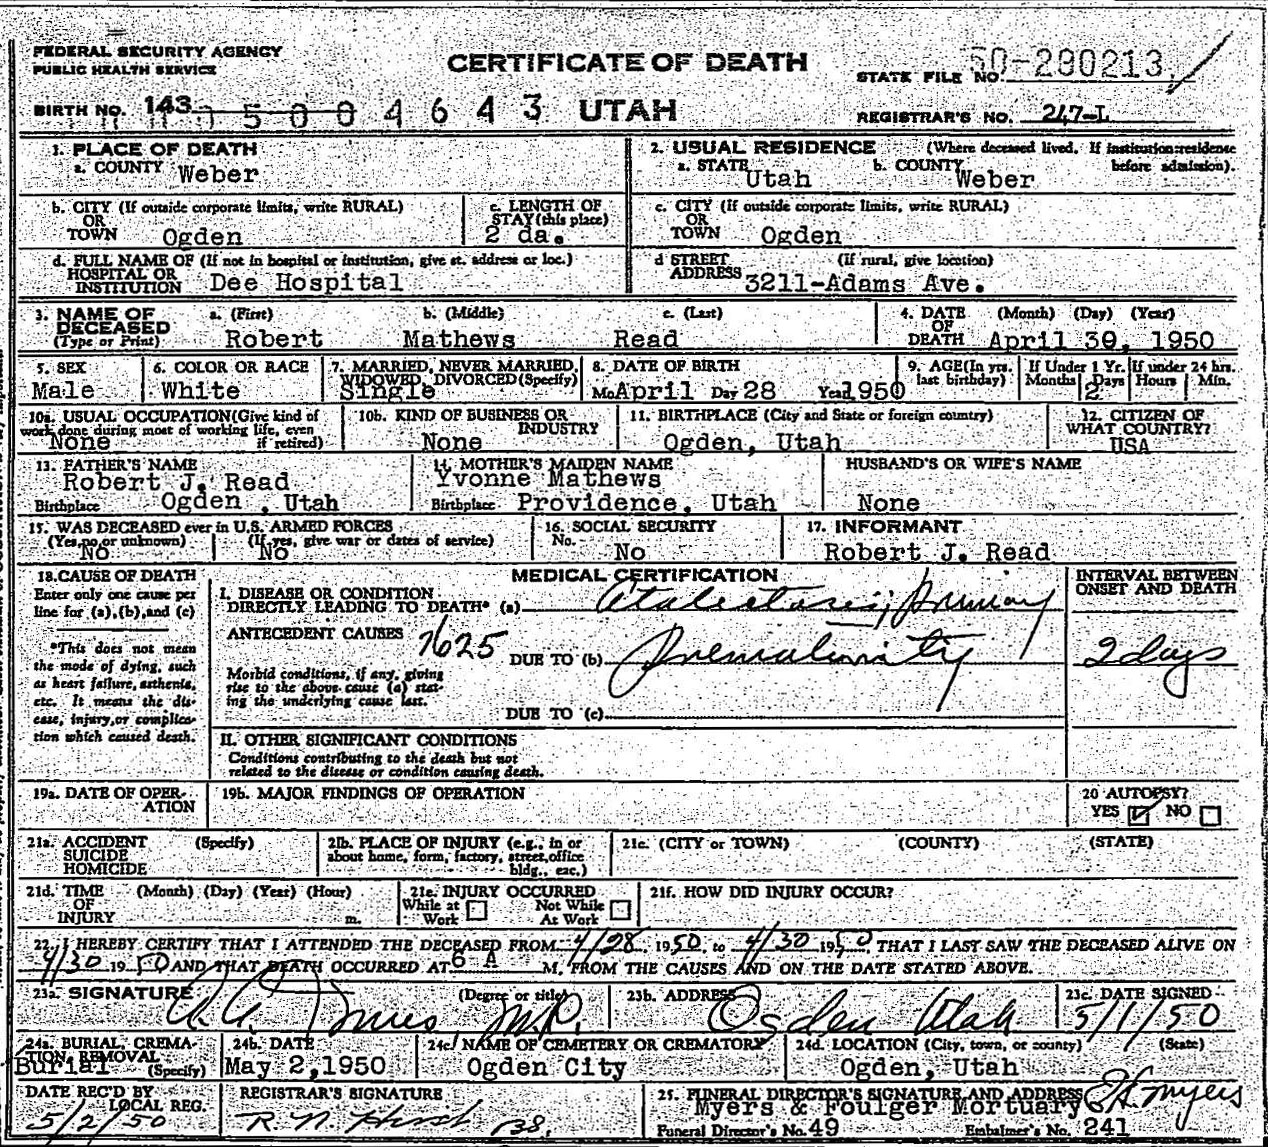 FEDERAL SECURITY AGENCY
PUBLIC HEALTH SERVICE
CERTIFICATE OF DEATH
STATE FILE NO. 50-280213
BIRTH NO. 143 500 4643 UTAH
REGISTRAR'S NO. 247-L
1. PLACE OF DEATH
a. COUNTY Weber
2. USUAL RESIDENCE (Where deceased lived. If institution: residence before admission).
a. STATE Utah b. COUNTY Weber
b. CITY (If outside corporate limits, write RURAL)
OR
TOWN Ogden
c. LENGTH OF
STAY (this place)
2 da.
c. CITY (If outside corporate limits, write RURAL)
OR
TOWN Ogden
d. FULL NAME OF (If not in hospital or institution, give st. address or loc.)
HOSPITAL OR
INSTITUTION Dee Hospital
d STREET (If rural, give location)
ADDRESS 3211-Adams Ave.
3. NAME OF
DECEASED
(Type or Print)
a. (First) b. (Middle) c. (Last)
Robert Mathews Read
4. DATE (Month) (Day) (Year)
OF
DEATH April 30, 1950
5. SEX
Male
6. COLOR OR RACE
White
7. MARRIED, NEVER MARRIED,
WIDOWED, DIVORCED (Specify)
Single
8. DATE OF BIRTH
Mo April Day 28 Year 1950
9. AGE (In yrs.
last birthday)
If Under 1 Yr.
Months Days
2
If under 24 hrs.
Hours Min.
10a. USUAL OCCUPATION (Give kind of
work done during most of working life, even
if retired)
None
10b. KIND OF BUSINESS OR
INDUSTRY
None
11. BIRTHPLACE (City and State or foreign country)
Ogden, Utah
12. CITIZEN OF
WHAT COUNTRY?
USA
13. FATHER'S NAME
Robert J. Read
Birthplace Ogden, Utah
14. MOTHER'S MAIDEN NAME
Yvonne Mathews
Birthplace Providence, Utah
HUSBAND'S OR WIFE'S NAME
None
15. WAS DECEASED ever in U.S. ARMED FORCES
(Yes, no, or unknown) (If yes, give war or dates of service)
No No
16. SOCIAL SECURITY
No.
No
17. INFORMANT
Robert J. Read
18. CAUSE OF DEATH
Enter only one cause per
line for (a), (b), and (c)
*This does not mean
the mode of dying, such
as heart failure, asthenia,
etc. It means the dis-
ease, injury, or complica-
tion which caused death.
MEDICAL CERTIFICATION
I. DISEASE OR CONDITION
DIRECTLY LEADING TO DEATH* (a) Atalectasis; primary
ANTECEDENT CAUSES 7625
DUE TO (b) Prematurity
Morbid conditions, if any, giving
rise to the above cause (a) stat-
ing the underlying cause last.
DUE TO (c)
INTERVAL BETWEEN
ONSET AND DEATH
2 days
II. OTHER SIGNIFICANT CONDITIONS
Conditions contributing to the death but not
related to the disease or condition causing death.
19a. DATE OF OPER-
ATION
19b. MAJOR FINDINGS OF OPERATION
20 AUTOPSY?
YES NO
21a. ACCIDENT (Specify)
SUICIDE
HOMICIDE
21b. PLACE OF INJURY (e.g., in or
about home, form, factory, street, office
bldg., etc.)
21c. (CITY or TOWN) (COUNTY) (STATE)
21d. TIME (Month) (Day) (Year) (Hour)
OF
INJURY m.
21e. INJURY OCCURRED
While at Not While
Work At Work
21f. HOW DID INJURY OCCUR?
22. I HEREBY CERTIFY THAT I ATTENDED THE DECEASED FROM 4/28, 1950, to 4/30 1950 THAT I LAST SAW THE DECEASED ALIVE ON
4/30 1950 AND THAT DEATH OCCURRED AT 6 A M, FROM THE CAUSES AND ON THE DATE STATED ABOVE.
23a. SIGNATURE (Degree or title) M.D.
23b. ADDRESS
Ogden Utah
23c. DATE SIGNED
5/1/50
24a. BURIAL, CREMA-
TION, REMOVAL
Burial (Specify)
24b. DATE
May 2, 1950
24c. NAME OF CEMETERY OR CREMATORY
Ogden City
24d. LOCATION (City, town, or county) (State)
Ogden, Utah
DATE REC'D BY
LOCAL REG.
5/2/50
REGISTRAR'S SIGNATURE
25. FUNERAL DIRECTOR'S SIGNATURE AND ADDRESS
Myers & Foulger Mortuary
Funeral Director's No. 49 Embalmer's No. 241